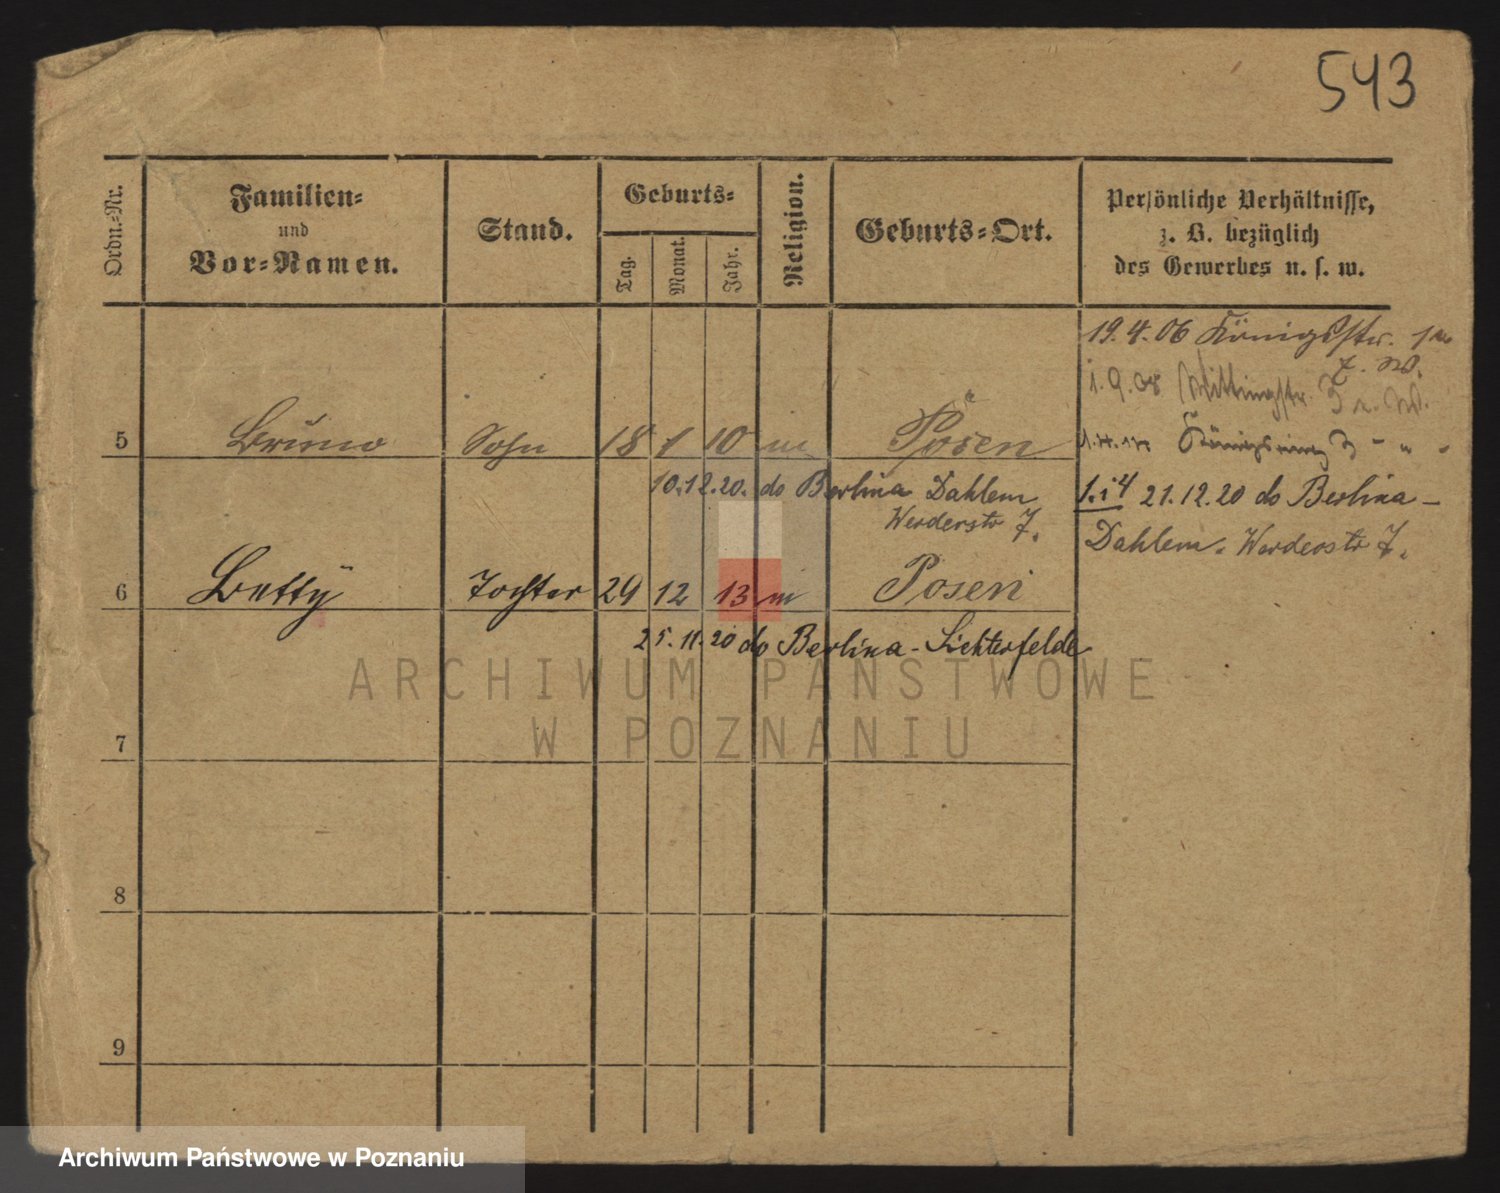 543
Ordn.-Nr.
Familien-
und
Vor-Namen.
Stand.
Geburts-
Tag.
Monat.
Jahr.
Religion.
Geburts-Ort.
Persönliche Verhältnisse,
z. B. bezüglich
des Gewerbes u. s. w.
19.4.06 Königsstr.
z. W.
1.9.08 3 z. W.
5 Bruno Sohn 18 1 10 m Posen
Königsring 3 " " "
10.12.20. do Berlina Dahlem
Werderstr 7.
1.i4 21.12.20 do Berlina -
Dahlem. Werderstr 7.
6 Betty Tochter 29 12 13 m Posen
25.11.20 do Berlina - Lichterfelde
ARCHIWUM PAŃSTWOWE
W POZNANIU
7
8
9
Archiwum Państwowe w Poznaniu